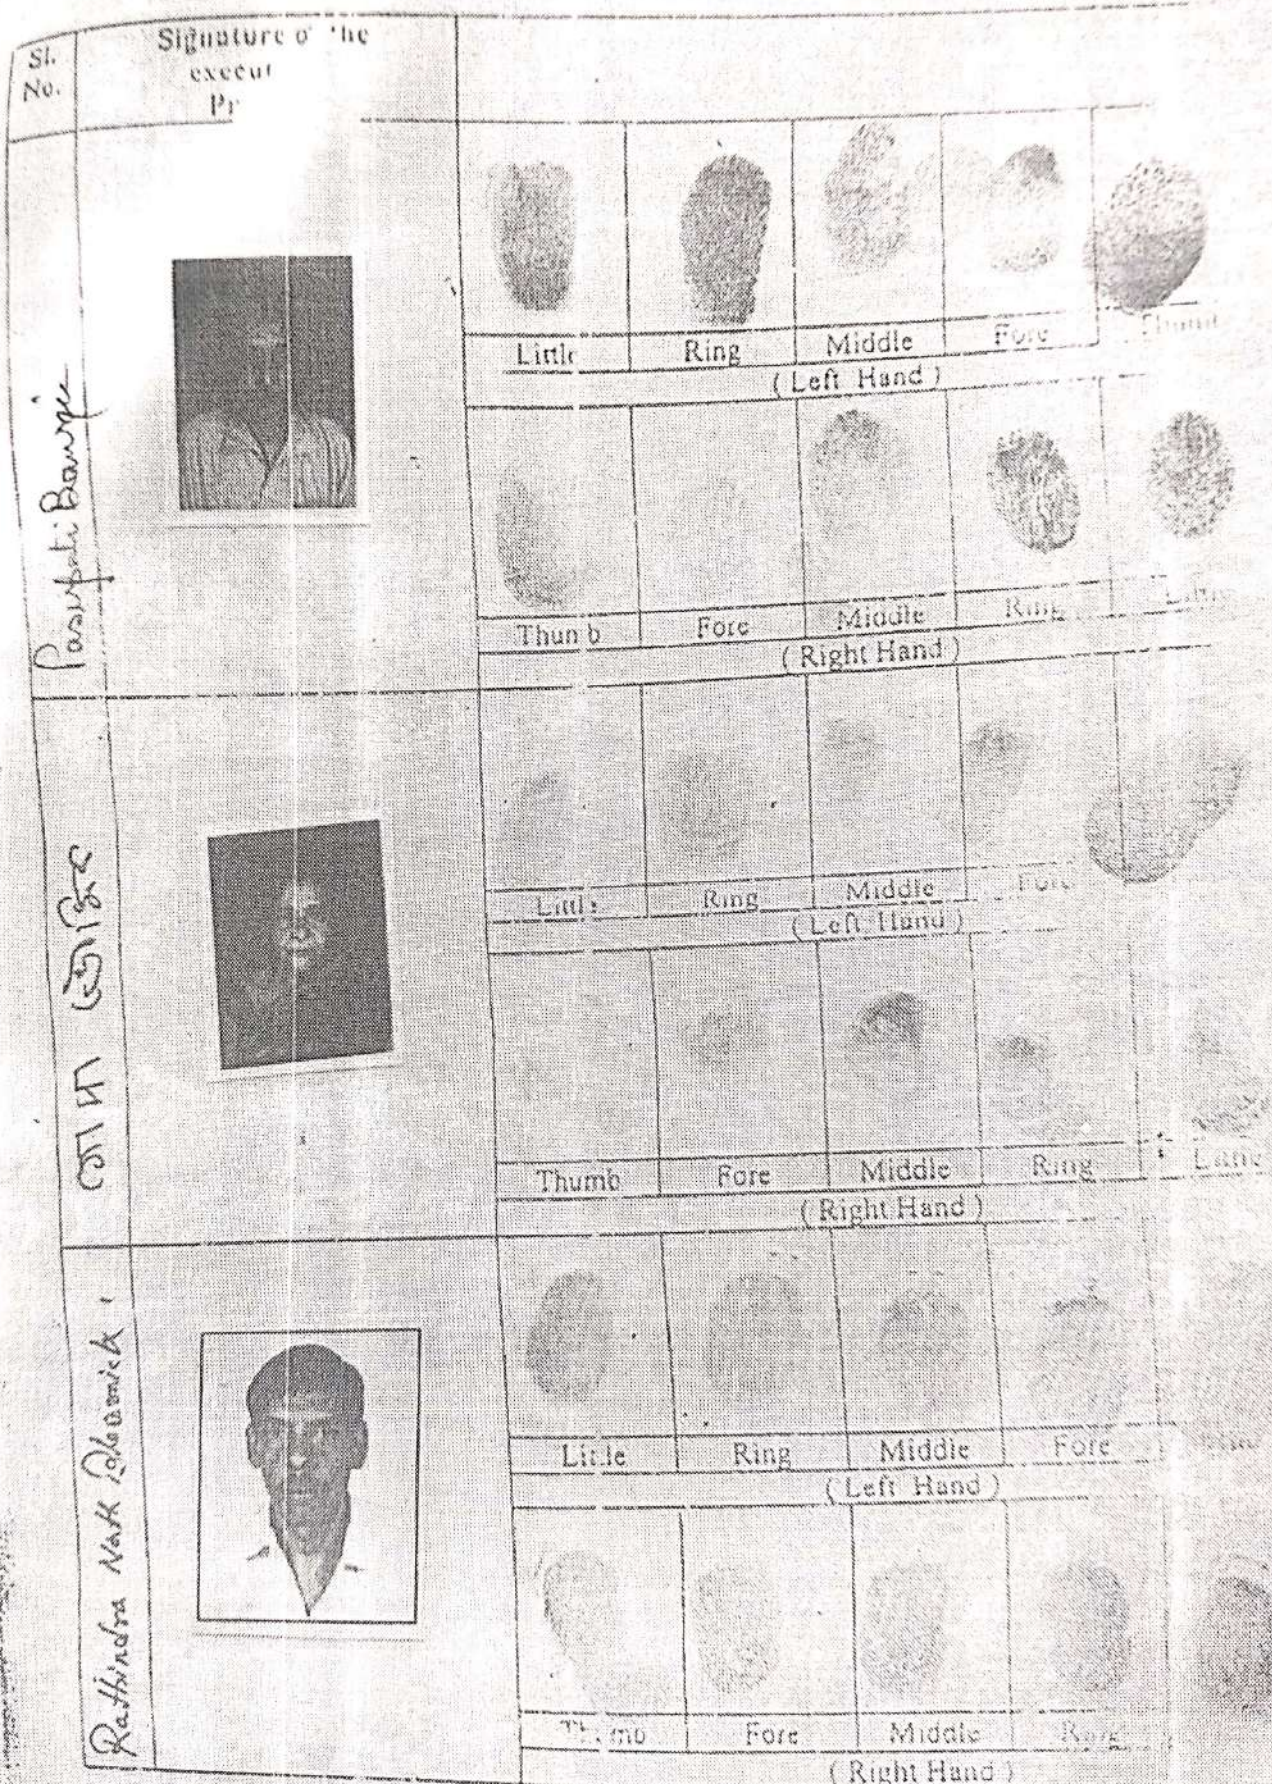 Sl.
No.
Signature o the
execut
Pr
Pasupati Banerji
Little Ring Middle Fore Thumb
( Left Hand )
Thun b Fore Middle Ring Little
( Right Hand )
Littl Ring Middle Fore
( Left Hand )
Thumb Fore Middle Ring Little
( Right Hand )
Rathindra Nath Bhowmick
Lit le Ring Middle Fore
( Left Hand )
Th mb Fore Middle Ring
( Right Hand )